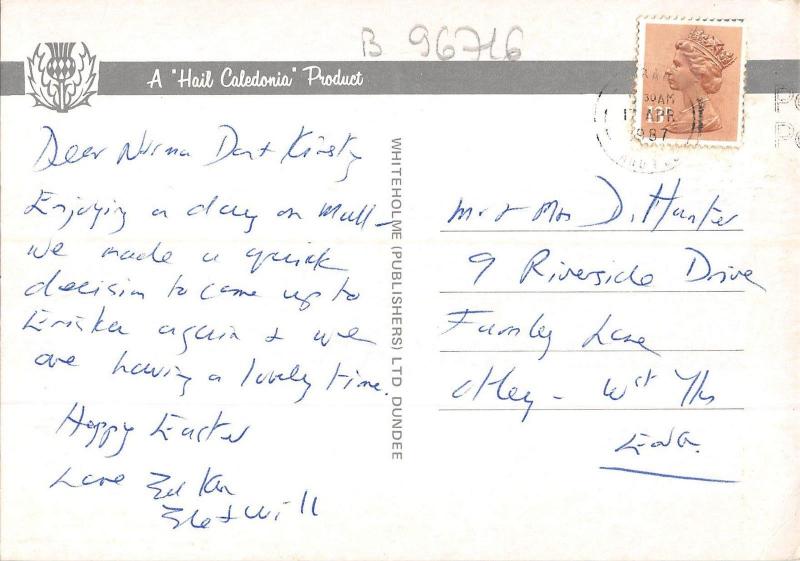 B 96716
A "Hail Caledonia" Product
30AM
17 APR
1987
Dear Norma Kirsty
Enjoying a day on Mull -
we made a quick
decision to come up to
Eriska again & we
are having a lovely time.
Happy Easter
Love
& Will
WHITEHOLME (PUBLISHERS) LTD DUNDEE
Mr & Mrs D. Hunter
9 Riverside Drive
Farnley Lane
Otley - Wst Yks
ENG.